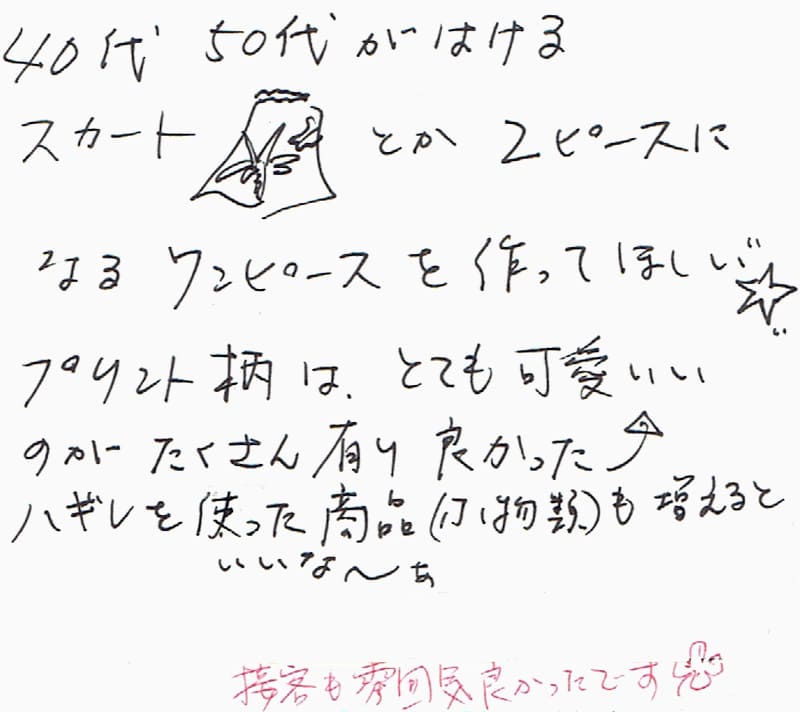 40代 50代がはける
スカート とか 2ピースに
なる ワンピースを作ってほしい☆
プリント柄は、とても可愛いい
のがたくさん有り良かった↗
ハギレを使った商品(小物類)も増えると
いいな〜ぁ
接客も雰囲気良かったです